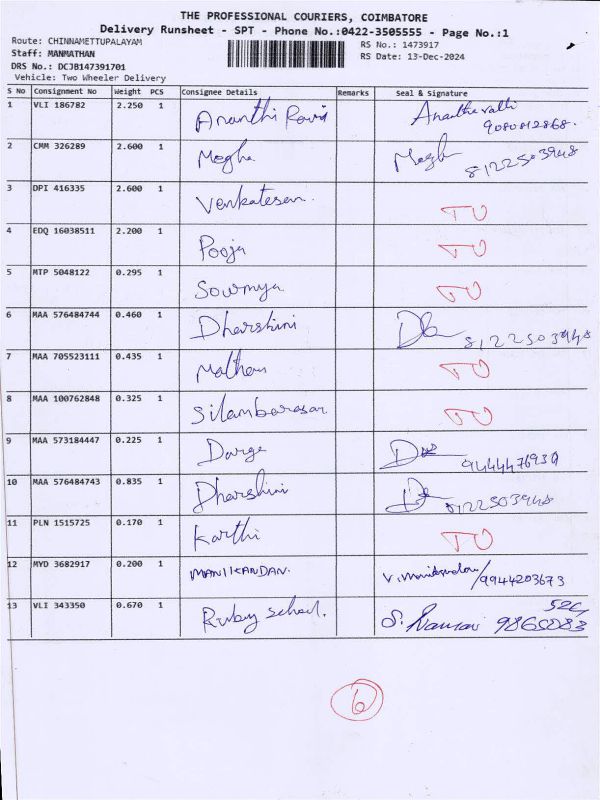 THE PROFESSIONAL COURIERS, COIMBATORE
Delivery Runsheet - SPT - Phone No.:0422-3505555 - Page No.:1
Route: CHINNAMETTUPALAYAM
Staff: MANMATHAN
DRS No.: DCJB147391701
Vehicle: Two Wheeler Delivery
RS No.: 1473917
RS Date: 13-Dec-2024
S No Consignment No Weight PCS Consignee Details Remarks Seal & Signature
1 VLI 186782 2.250 1 Ananthi Ravi Anantha valli
9080812868.
2 CMM 326289 2.600 1 Megha Megh 8122503948
3 DPI 416335 2.600 1 Venkatesan. TO
4 EDQ 16038511 2.200 1 Pooja TO
5 MTP 5048122 0.295 1 Sowmya TO
6 MAA 576484744 0.460 1 Dharshini 8122503948
7 MAA 705523111 0.435 1 Mathan TO
8 MAA 100762848 0.325 1 Silambarasan TO
9 MAA 573184447 0.225 1 Durge
10 MAA 576484743 0.835 1 Dharshini 8122503948
11 PLN 1515725 0.170 1 Karthi TO
12 MYD 3682917 0.200 1 MANIKANDAN. V. Manikandan/9944203673
13 VLI 343350 0.670 1 Ruby school. S. 9865083
524
6